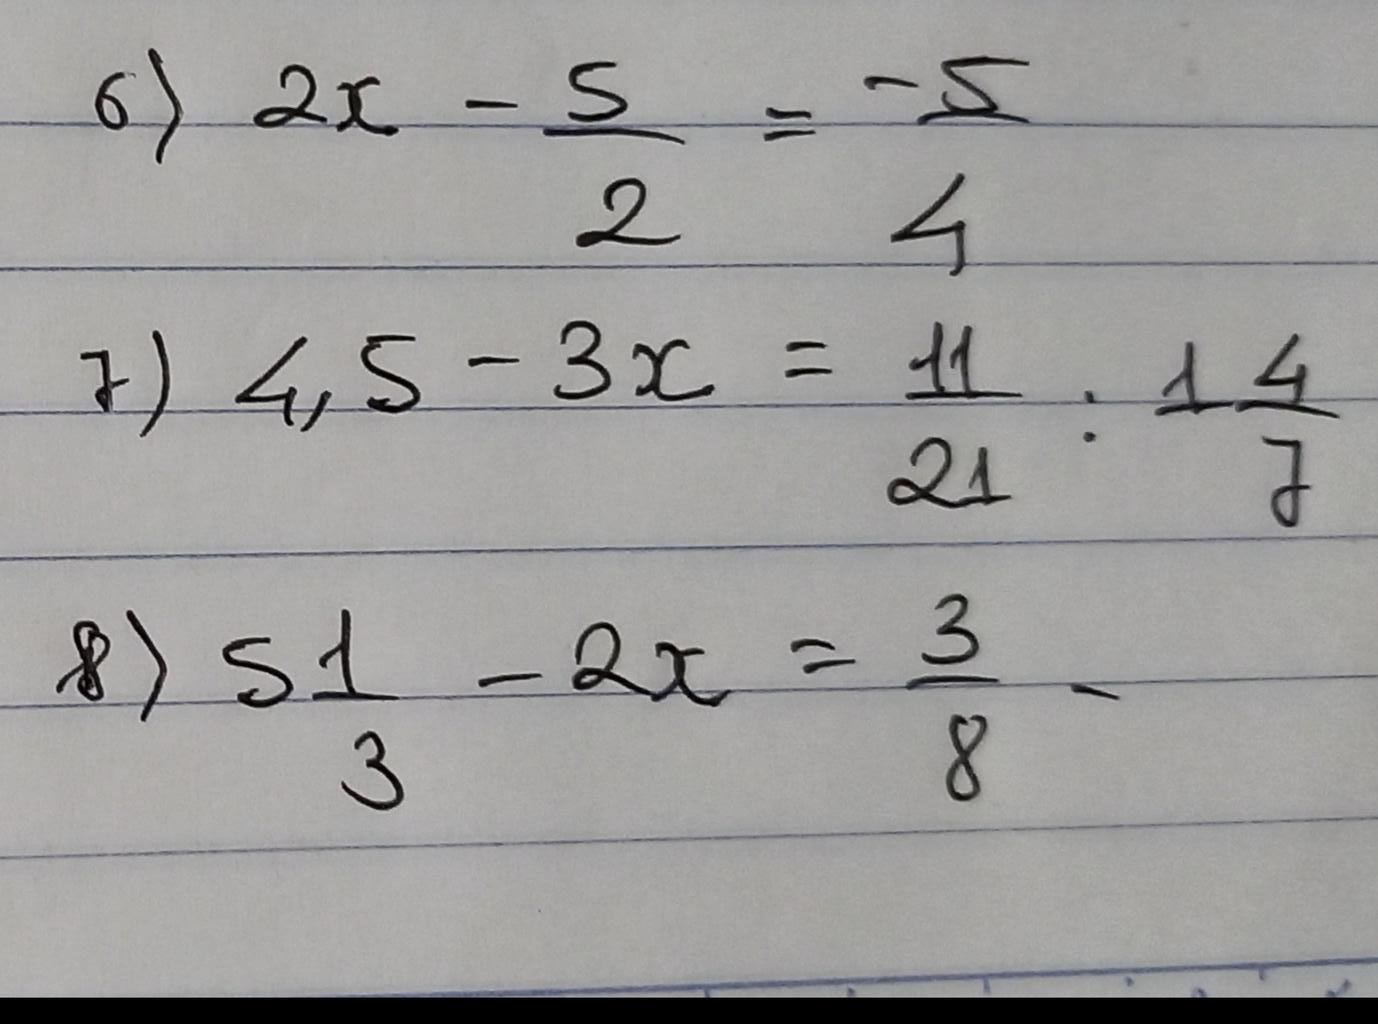 6) 2x - 5/2 = -5/4
7) 4,5 - 3x = 11/21 : 1 4/7
8) 5 1/3 - 2x = 3/8 -